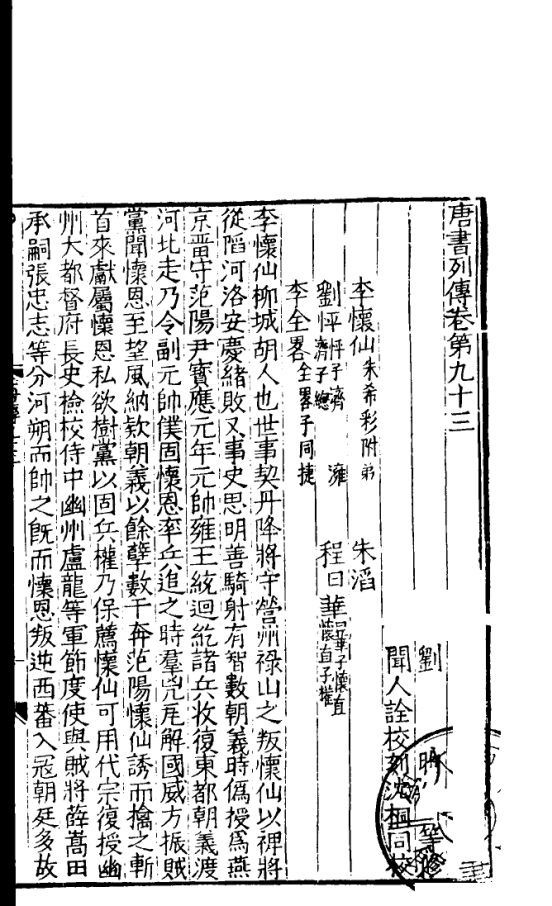 唐書列傳卷第九十三
劉 昫 等修
聞人詮校刻沈桐同校
李懷仙 朱希彩附 弟 朱滔
劉怦 怦子濟 濟子總 澭 程日華 日華子懷直 懷直子權
李全畧 全畧子同捷
李懷仙柳城胡人也世事契丹降將守營州祿山之叛懷仙以裨將
從陷河洛安慶緒敗又事史思明善騎射有智數朝義時僞授爲燕
京畱守范陽尹寳應元年元帥雍王統迴紇諸兵收復東都朝義渡
河北走乃令副元帥僕固懷恩率兵追之時羣兇瓦解國威方振賊
黨聞懷恩至望風納欵朝義以餘孽數千奔范陽懷仙誘而擒之斬
首來獻屬懷恩私欲樹黨以固兵權乃保薦懷仙可用代宗復授幽
州大都督府長史檢校侍中幽州盧龍等軍節度使與賊將薛嵩田
承嗣張忠志等分河朔而帥之旣而懷恩叛逆西蕃入冦朝廷多故